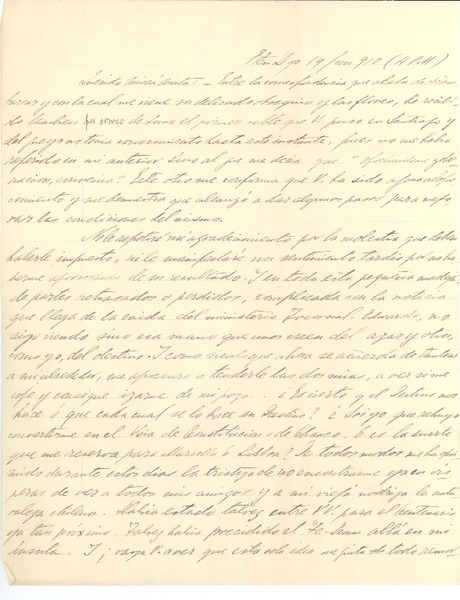 Stgo 14 Jun 910 (4 P.M)
Querido - Entre la correspondencia que acaba de
y con la cual me viene su delicado obsequio y las flores, he recibi-
do tambien de el primer cable que V. puso en Santiago y
del que yo no tenia conocimiento hasta este instante, pues no me habia
referido en mi anterior sino al que me decia que
nacion, convenia". Este otro me confirma que V. ha sido
y me demuestra que alcanzó a dar algunos pasos para mejo-
rar las condiciones del mismo.
No le repetiré mi agradecimiento por la molestia que debe
haberle impuesto, ni le manifestaré un sentimiento tardío por no ha-
berme aprovechado de su resultado. I en toda esta pequeña madeja
de partes retrasados o perdidos, complicada con la noticia
que llega de la caida del ministerio Tocornal Edwards, no
sigo viendo sino esa mano que unos creen del azar y otros,
como yo, del destino. I como siento que ahora se acuerda de
a mi alrededor, me apresuro a tenderle las dos mias, a ver si me
coje y consigue izarme de mi pozo. . ¿Es cierto que el Destino nos
hace o que cada cual se lo hace su Destino? ¿Soi yo que rehuyo
convertirme en el de Constitucion i de Chanco, o es la suerte
que me reserva para Marsella o Lisboa? De todos modos me ha opri-
mido durante estos dias la tristeza de no encontrarme ya en vis-
peras de ver a todos mis amigos y a mi vieja nodriza la natu-
raleza chilena. Habria estado talvez entre VV. para el centenario
ya tan próximo. Talvez habria precedido el allá en mi
ínsula. I ¡vaya V. a ver que esta sola idea me quita de todo